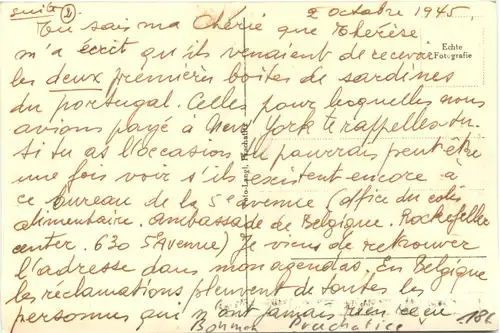 suite 2
2 octobre 1945.
Tu sais ma Chérie que Thérèse
m'a écrit qu'ils venaient de recevoir
Echte
Fotografie
les deux premières boites de sardines
du portugal. Celles pour lesquelles nous
avions payé à New York te rappelles-tu.
Si tu as l'occasion tu pourrais peut être
une fois voir s'ils existent encore à
ce bureau de la 5e avenue (office du colis
alimentaire. Ambassade de Belgique. Rockefeller
center. 630 5 Avenue) Je viens de retrouver
l'adresse dans mon agenda. En Belgique
les réclamations pleuvent de toutes les
personnes qui n'ont jamais rien reçu
Prachatice 186